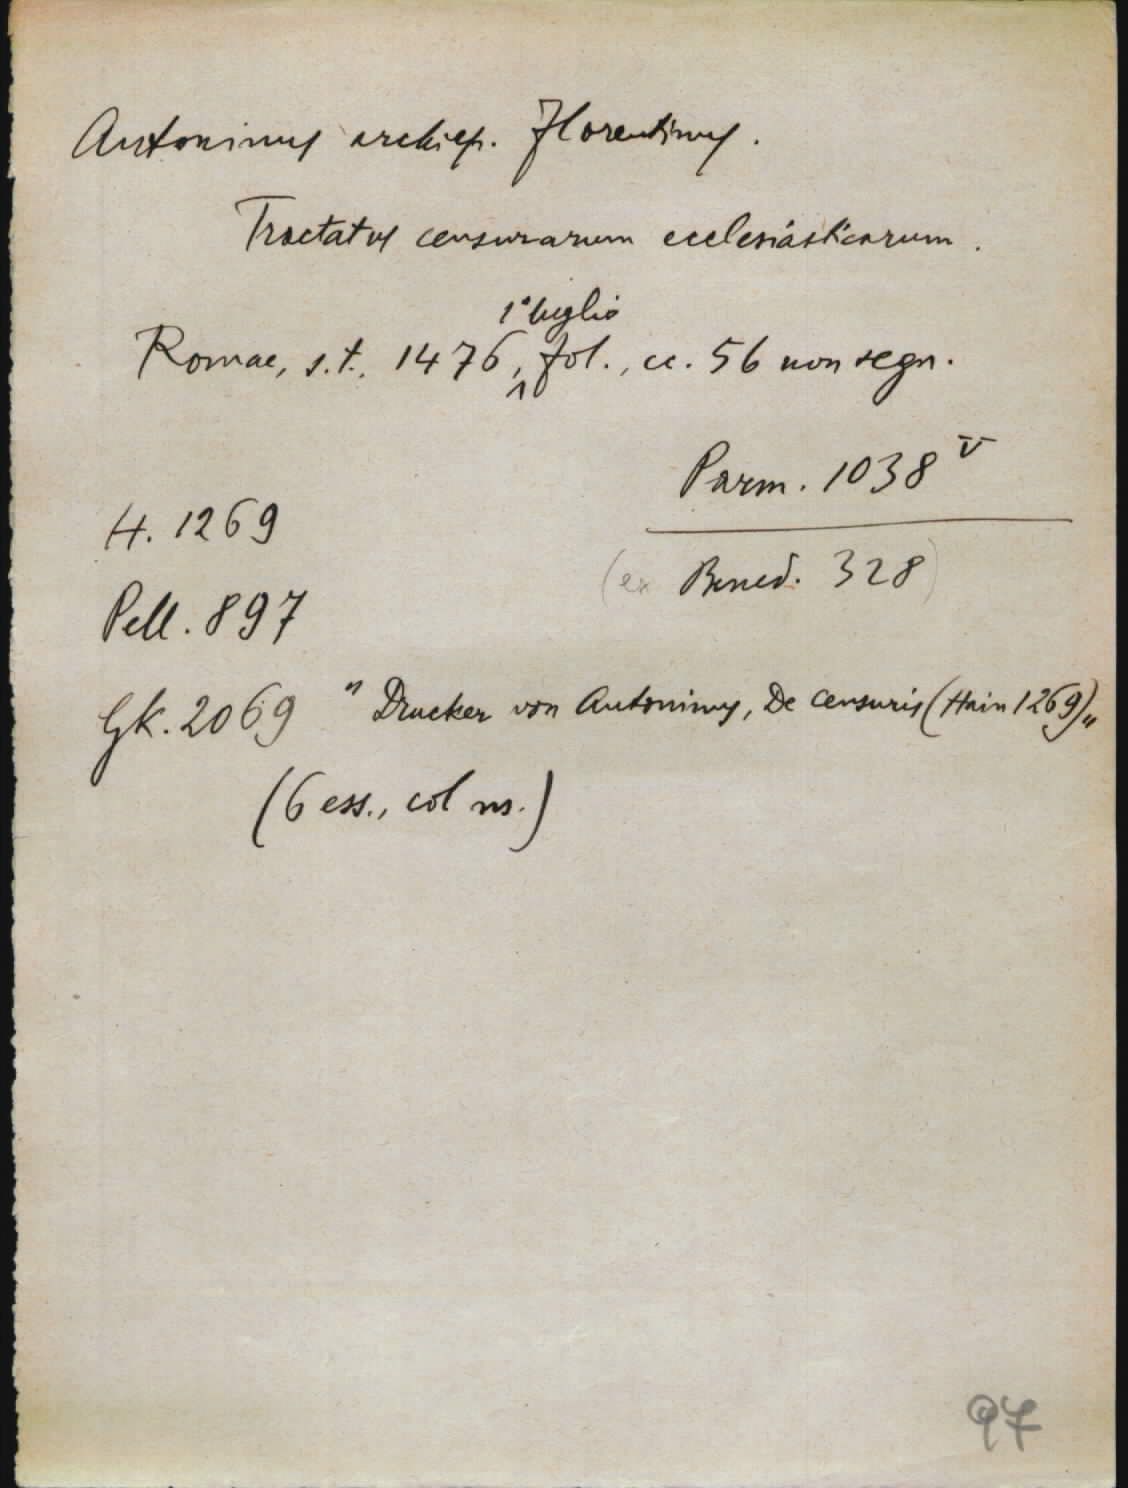 Antoninus archiep. Florentinus.
Tractatus censurarum ecclesiasticarum.
1° luglio
Romae, s.t., 1476, fol., cc. 56 non segn.
Parm. 1038 V
H. 1269
(ex Bened. 328)
Pell. 897
GK. 2069 " Drucker von Antoninus, De censuris (Hain 1269)"
(6 ess., col ns.)
97